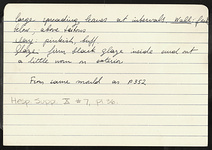 large spreading leaves at intervals. Walls fine
below, above
Clay: pinkish buff
Glaze: firm black glaze inside and out
a little worn on exterior
From same mould as P352
Hesp. Supp. X #7, p. 56.